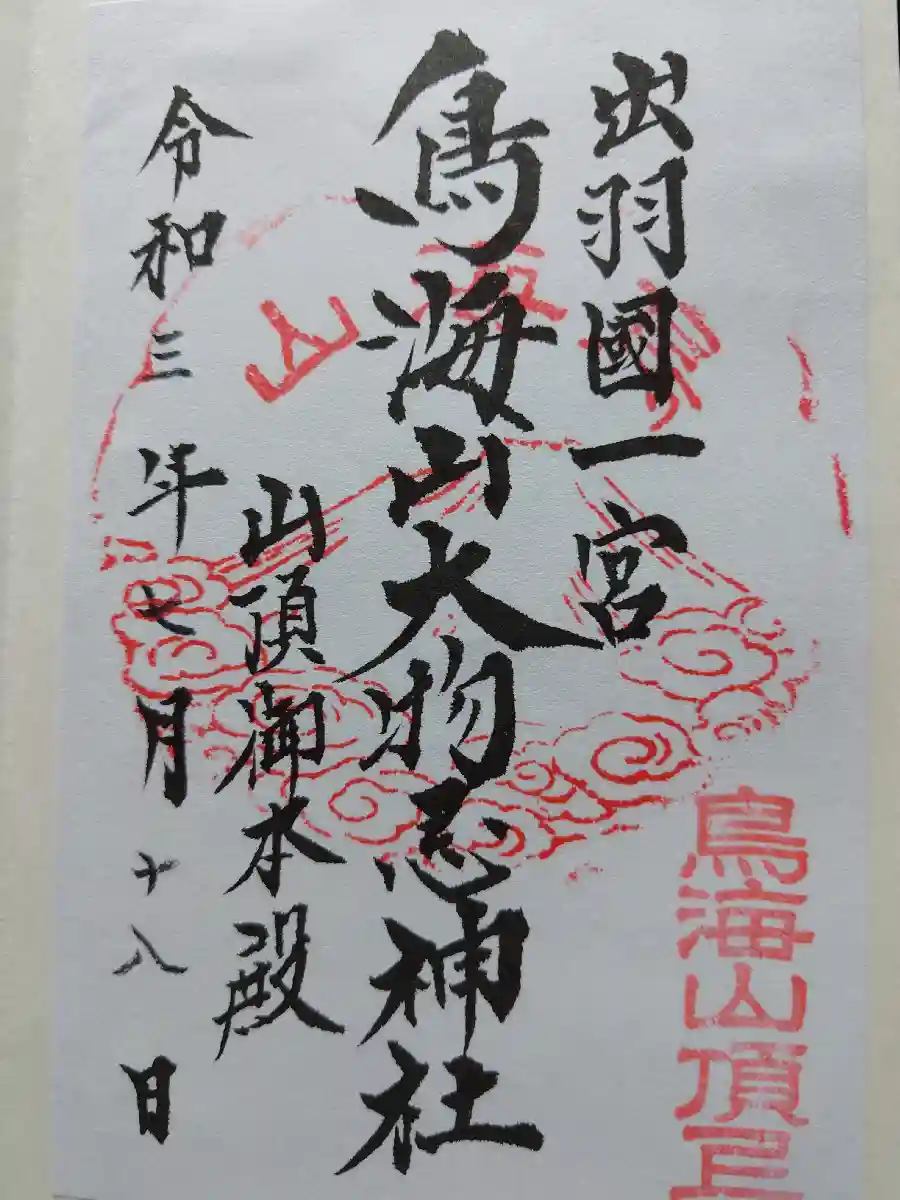 出羽國一宮
鳥海山大物忌神社
山頂御本殿
令和三年七月十八日
鳥海山
鳥海山頂